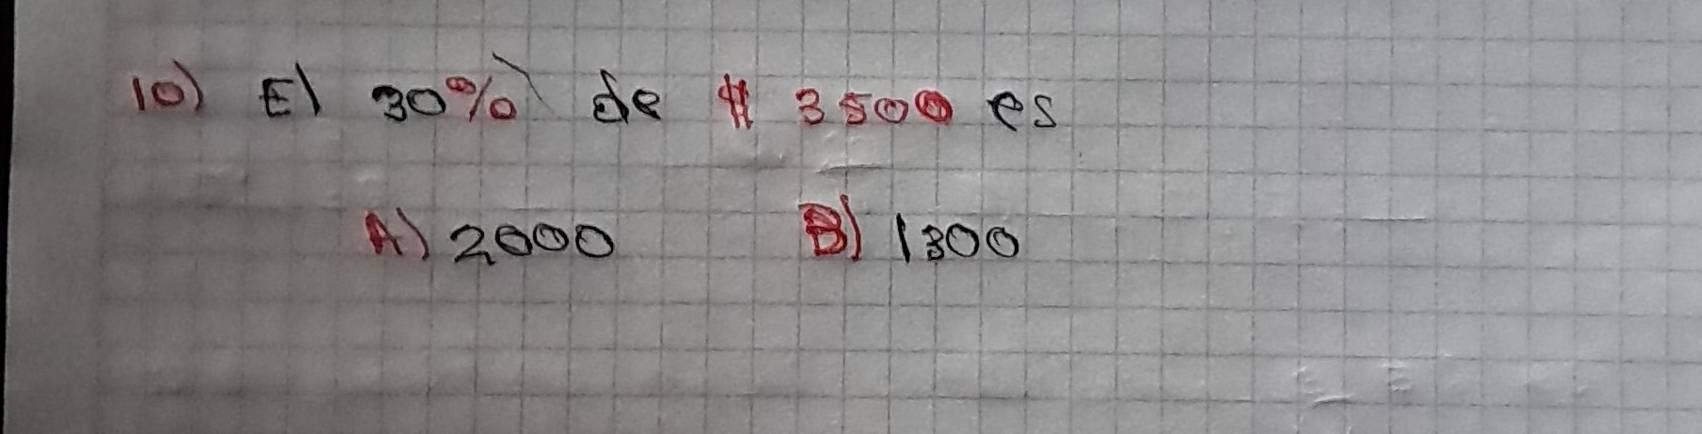 10) El 30% de $ 3500 es
A) 2000 B) 1300